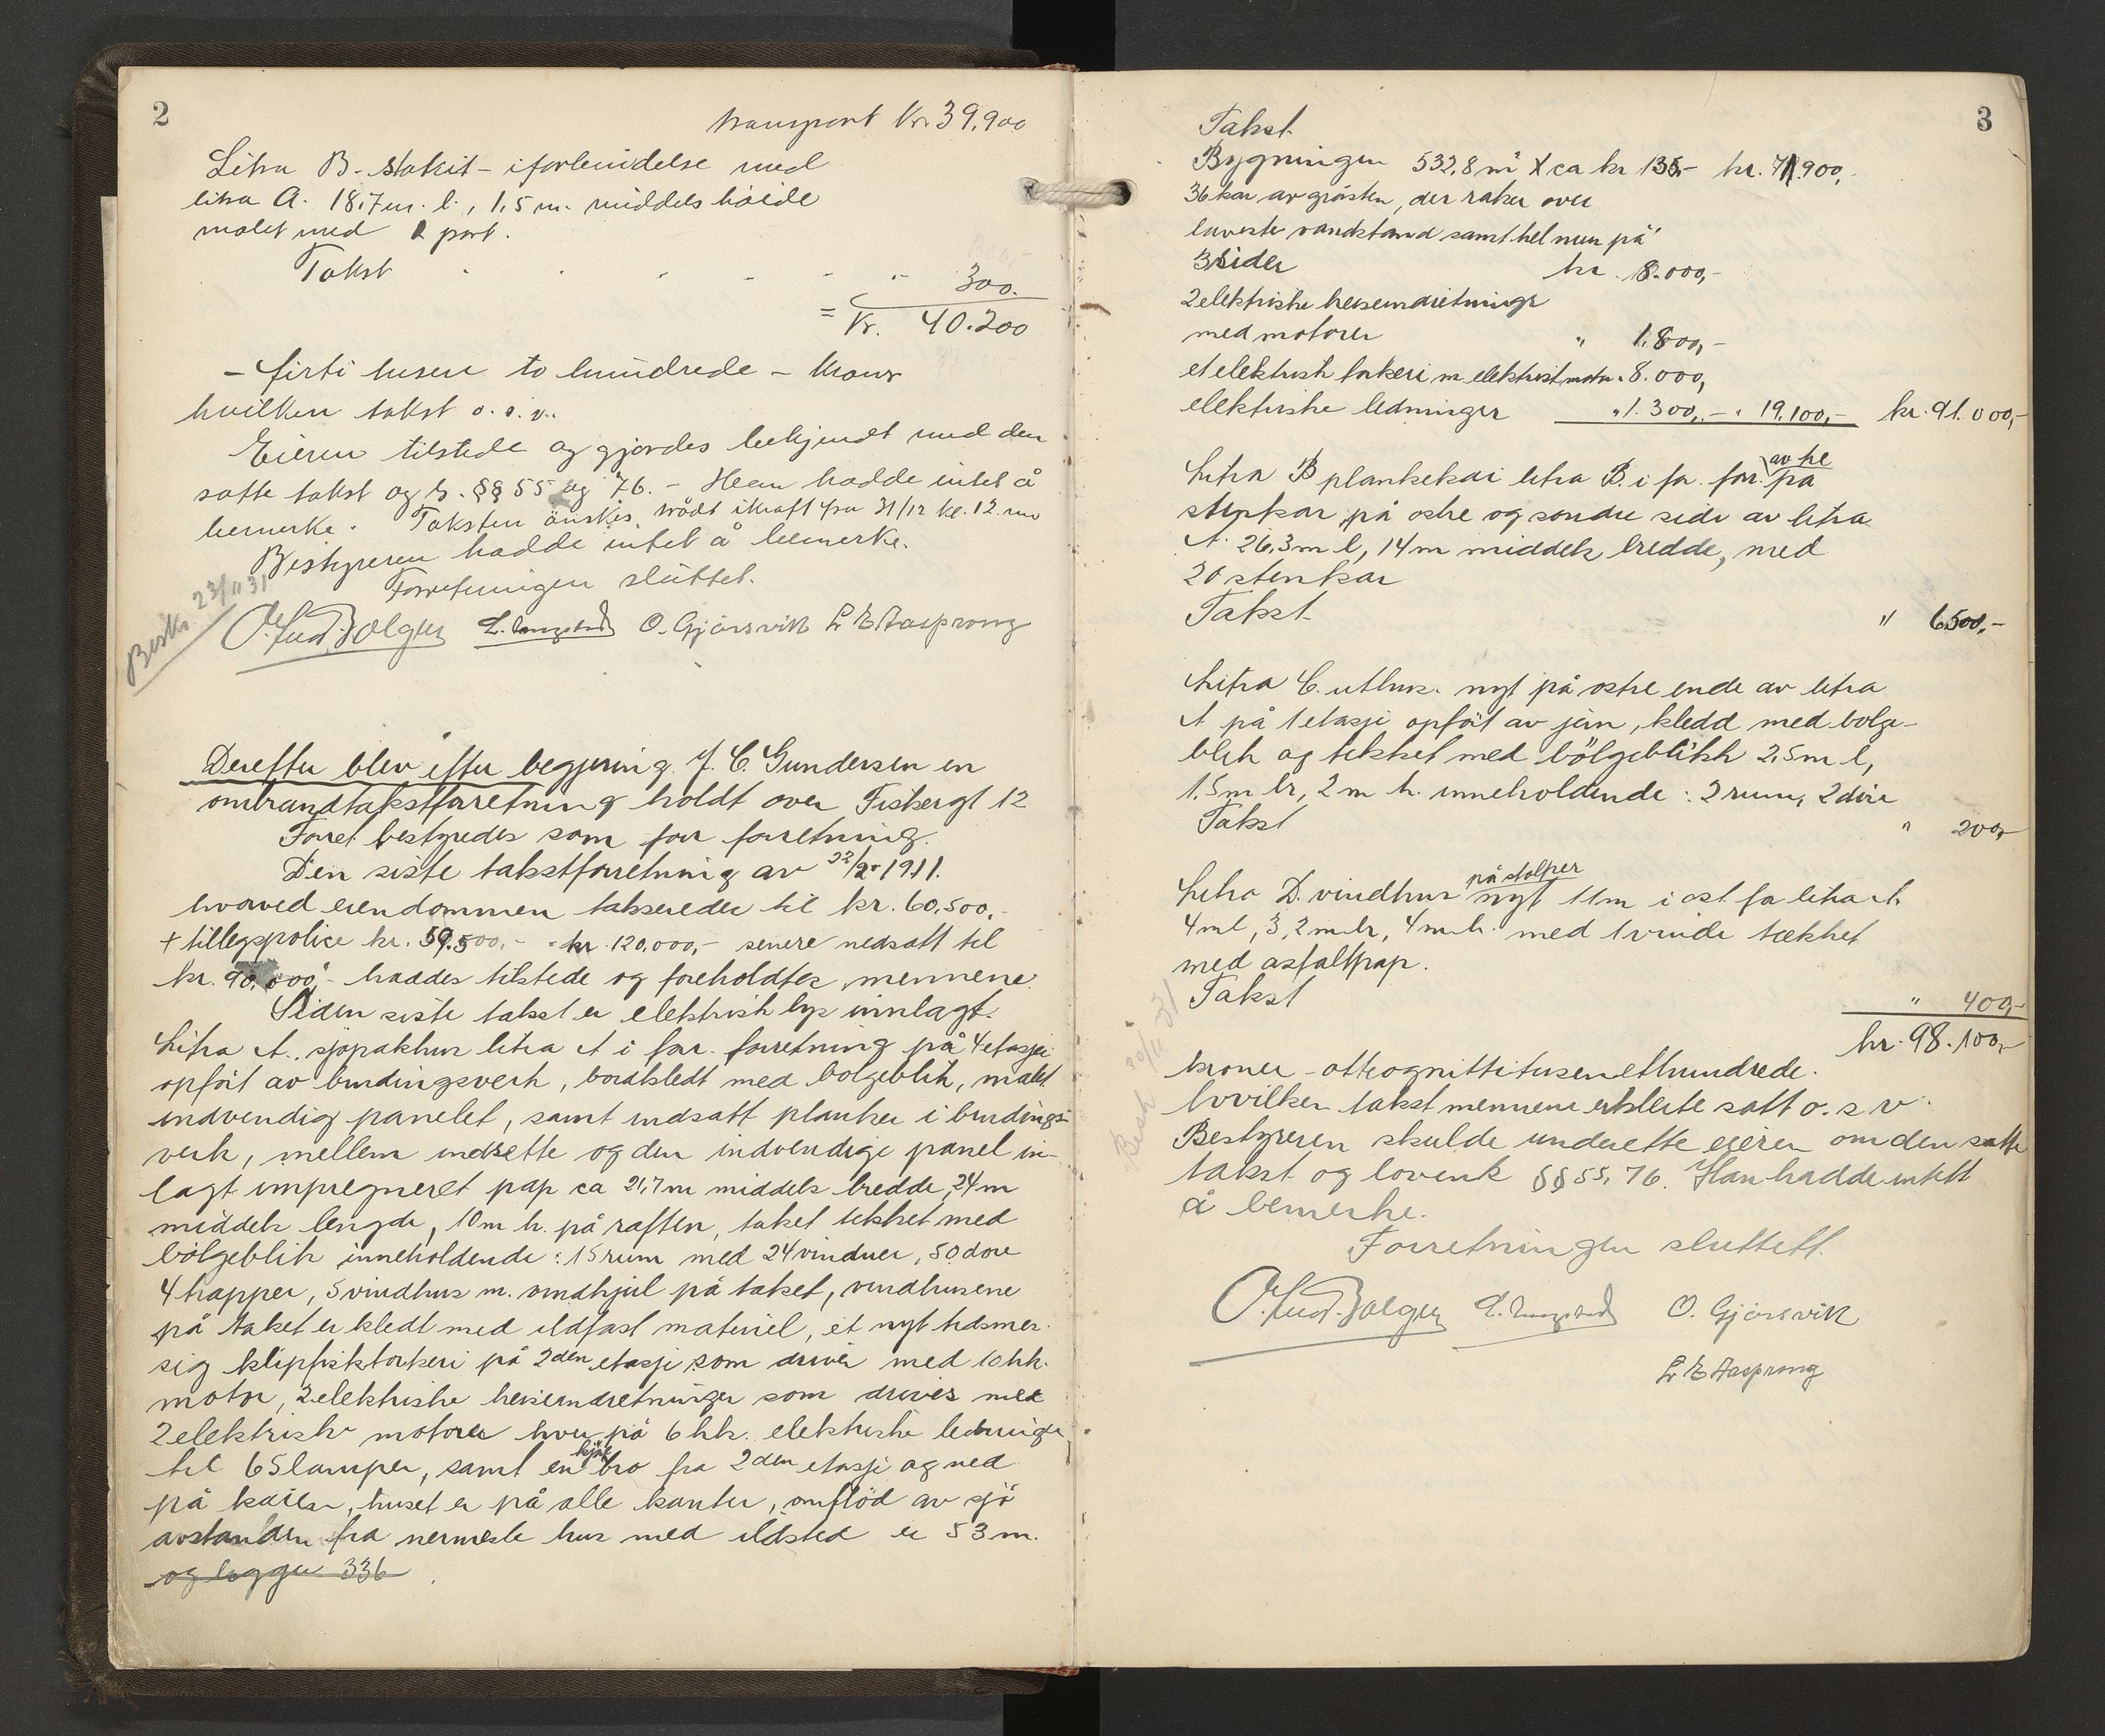 2
transport Kr. 39.900
Litra B. stakit - i forbindelse med
litra A. 18,7 m. l., 1,5 m. middels høide
malet med 2 port.
Takst - - - - - " 300.
= Kr. 40.200
- førti tusen to hundrede - kroner
hvilken takst o.s.v.
Eieren tilstede og gjordes bekjendt med den
satte takst og l. §§ 55 og 76. - Han hadde intet å
bemerke. Taksten önskes trådt ikraft fra 31/12 kl. 12. mn
Bestyreren hadde intet å bemerke.
Forretningen slüttet.
Besk. 23/11 31
O. Gjörsvik L E Aasprong
Derefter blev efter begjæring J. C. Gundersen en
ombrandtakstforretning holdt over Fiskergt 12
Forret. bestyredes som forr forretning.
Den siste takstforretning av 22/2-1911.
hvorved eiendommen takseredes til kr. 60.500,-
+ tillegspolice kr. 59.500,- = kr. 120.000,- senere nedsatt til
kr. 90.000,- haddes tilstede og foreholdtes mennene.
Siden siste takst er elektrisk lys innlagt.
Litra A. sjöpakhus litra A i forr. forretning på 4 etasjer
opfört av bindingsverk, bordkledt med bolgeblik, malt
indvendig panelet, samt indsatt planker i bindings-
verk, mellem indsette og den indvendige panel in-
lagt impregneret pap ca 21,7 m middels bredde, 24 m
middels lengde, 10 m h. på raften, taket tekket med
bölgeblik inneholdende: 15 rum med 24 vinduer, 50 dore
4 kapper, 5 vindhus m. vindhjul på taket, vindhusene
på taket er kledt med ildfast materiel, et nyt tidsmes-
sig klipfisktorkeri på 2den etasje som drives med 10 hk.
motor, 2 elektriske heiseindretninger som drives med
2 elektriske motorer hver på 6 hk. elektriske ledninger
til 65 lamper, samt en kjörebro fra 2den etasje og ned
på kaien, huset er på alle kanter, omflöd av sjö
avstanden fra nermeste hus med ildsted er 53 m.
og legger 336
3
Takst
Bygningen 532,8 m² X ca kr 135,- kr. 71.900,-
36 kar av gråsten, der raker over
laveste vandstand samt hel mur på
3 sider kr. 8.000,-
2 elektriske heiseindretninger
med motorer " 1.800,-
et elektrisk torkeri m elektrisk motor " 8.000,
elektriske ledninger " 1.300,- " 19.100,- kr. 91.000,-
Litra B plankekai litra B. i forr. forr. av tre på
stenkar på ostre og sondre side av litra
A. 26,3 m l, 14 m middels bredde, med
20 stenkar
Takst " 6500,-
Litra C. uthus. nyt på ostre ende av litra
A på 1 etasje opfört av jern, kledd med bolge-
blik og tekket med bölgeblikk 2,5 m l,
1,5 m br, 2 m h. inneholdende: 2 rum, 2 döre
Takst " 200,-
Litra D. vindhus nyt på stolper 11 m i ost for litra A.
4 m l, 3,2 m br, 4 m h. med 1 vinde tækket
med asfaltpap.
Takst " 400,-
kr. 98.100,-
Besk 30/11 31
kroner - otteognittitusenethundrede.
hvilken takst mennene erklerte satt o.s.v.
Bestyreren skulde underrette eieren om den satte
takst og lovens §§ 55, 76. Han hadde intett
å bemerke.
Forretningen sluttett.
O. Gjörsvik
L E Aasprong